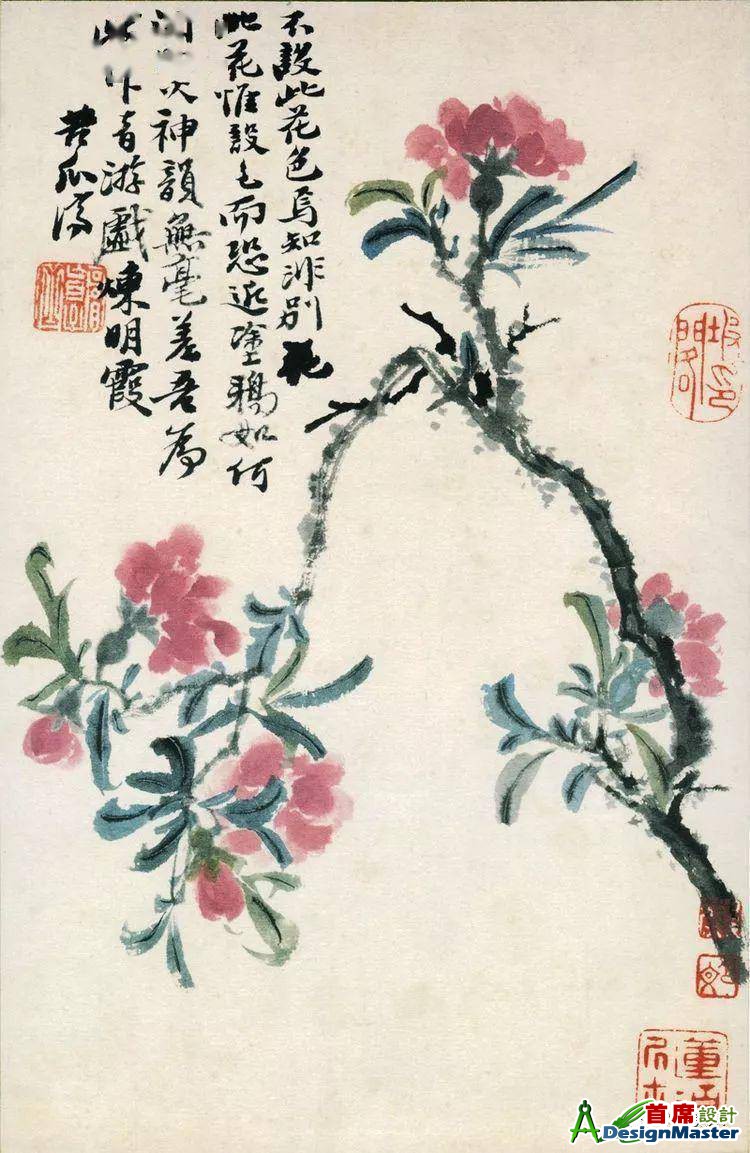 不設此花色焉知非別花
此花惟設色而恐近塗鴉如何
神韻無毫差吾為
音游戲煉明霞
苦瓜濟
首席設計
ADesignMaster